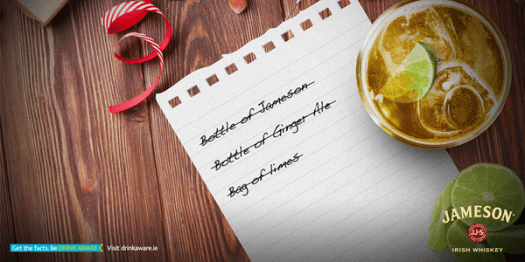 Bottle of Jameson
Bottle of Ginger Ale
Bag of limes
Get the facts. Be DRINK AWARE Visit drinkaware.ie
JAMESON
JJ&S
IRISH WHISKEY